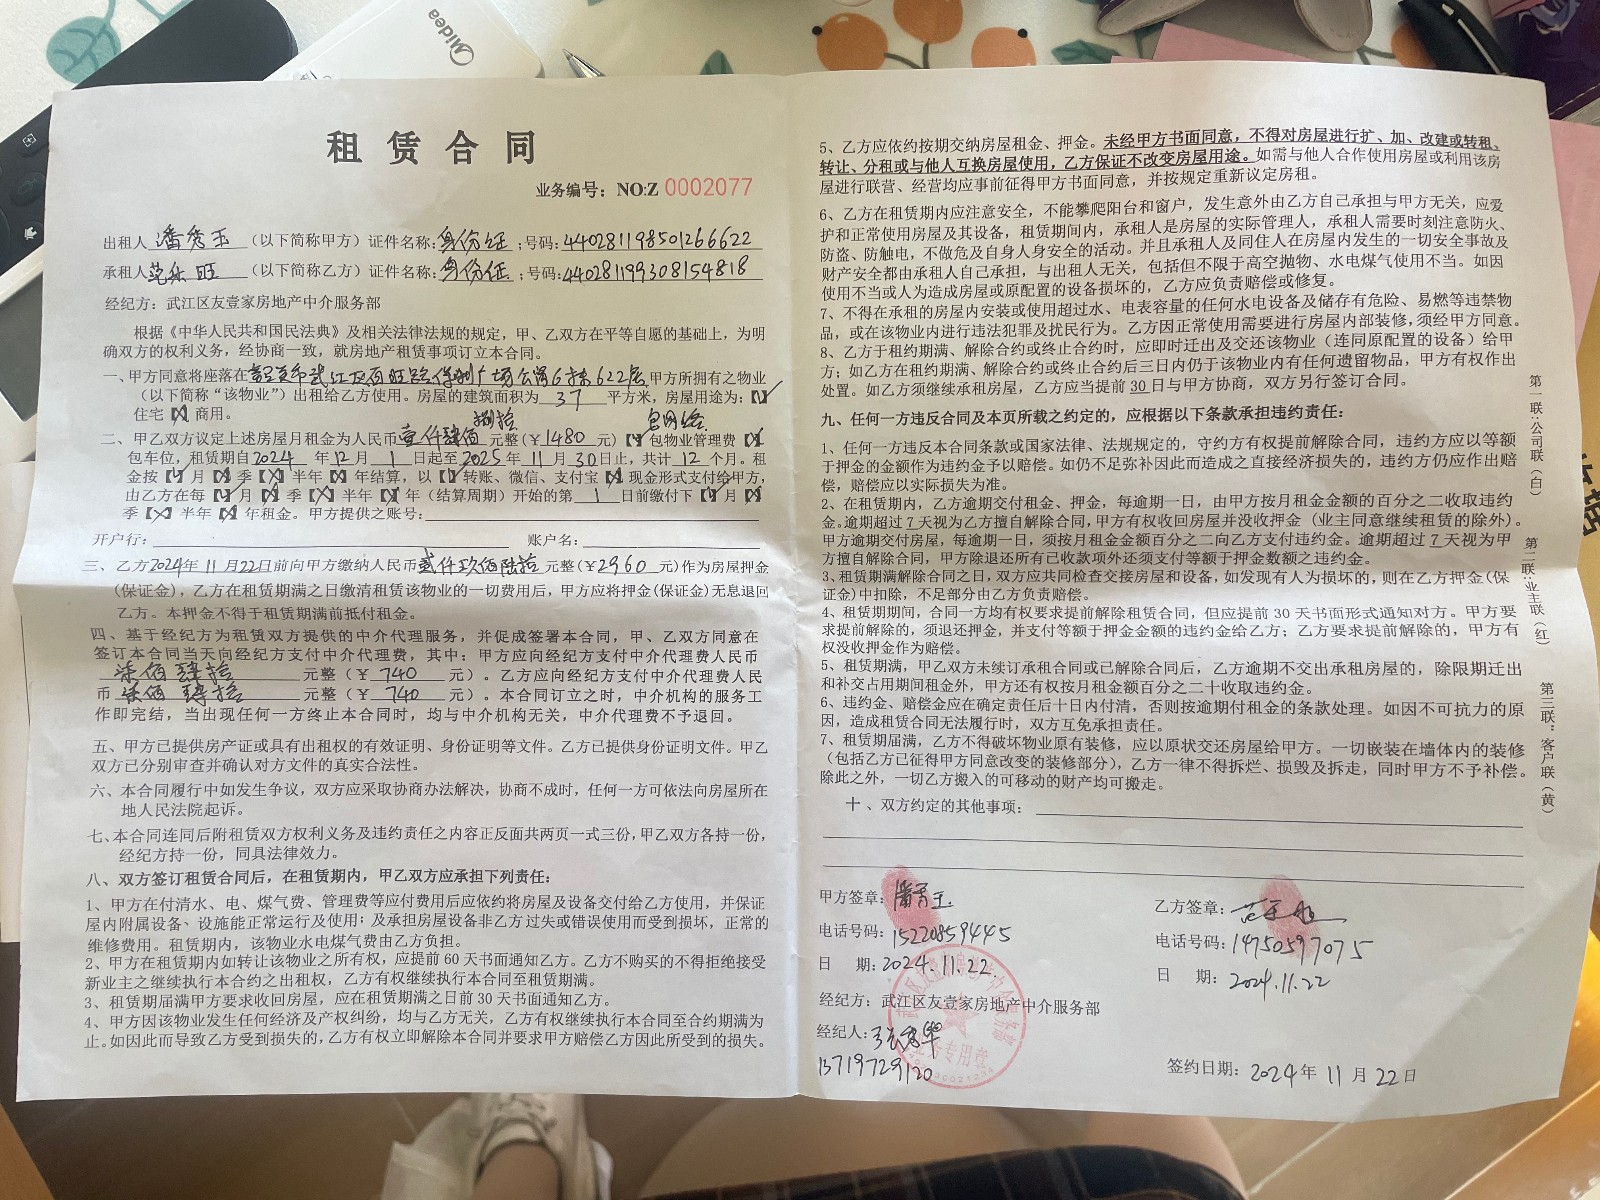 Midea
租赁合同
业务编号：NO:Z 0002077
出租人 潘秀玉 （以下简称甲方）证件名称：身份证；号码：440281198501266622
承租人 范 旺 （以下简称乙方）证件名称：身份证；号码：440281199308154818
经纪方：武江区友壹家房地产中介服务部
根据《中华人民共和国民法典》及相关法律法规的规定，甲、乙双方在平等自愿的基础上，为明
确双方的权利义务，经协商一致，就房地产租赁事项订立本合同。
一、甲方同意将座落在韶关市武江区百旺路保利广场公寓6栋622房甲方所拥有之物业
（以下简称“该物业”）出租给乙方使用。房屋的建筑面积为 37 平方米，房屋用途为：【✓】
住宅【×】商用。
捌拾
包网络
二、甲乙双方议定上述房屋月租金为人民币壹仟肆佰 元整（¥1480 元）【✓】包物业管理费【×】
包车位，租赁期自2024 年12月 1 日起至2025年 11月 30日止，共计 12 个月。租
金按【✓】月【×】季【×】半年【×】年结算，以【✓】转账、微信、支付宝【×】现金形式支付给甲方，
由乙方在每【✓】月【×】季【×】半年【×】年（结算周期）开始的第 1 日前缴付下【✓】月【×】
季【×】半年【×】年租金。甲方提供之账号：
开户行： 账户名：
三、乙方2024年 11月22日前向甲方缴纳人民币贰仟玖佰陆拾 元整（¥2960 元）作为房屋押金
（保证金），乙方在租赁期满之日缴清租赁该物业的一切费用后，甲方应将押金(保证金)无息退回
乙方。本押金不得于租赁期满前抵付租金。
四、基于经纪方为租赁双方提供的中介代理服务，并促成签署本合同，甲、乙双方同意在
签订本合同当天向经纪方支付中介代理费，其中：甲方应向经纪方支付中介代理费人民币
柒佰肆拾 元整（¥ 740 元）。乙方应向经纪方支付中介代理费人民
币 柒佰肆拾 元整（¥ 740 元）。本合同订立之时，中介机构的服务工
作即完结，当出现任何一方终止本合同时，均与中介机构无关，中介代理费不予退回。
五、甲方已提供房产证或具有出租权的有效证明、身份证明等文件。乙方已提供身份证明文件。甲乙
双方已分别审查并确认对方文件的真实合法性。
六、本合同履行中如发生争议，双方应采取协商办法解决，协商不成时，任何一方可依法向房屋所在
地人民法院起诉。
七、本合同连同后附租赁双方权利义务及违约责任之内容正反面共两页一式三份，甲乙双方各持一份，
经纪方持一份，同具法律效力。
八、双方签订租赁合同后，在租赁期内，甲乙双方应承担下列责任：
1、甲方在付清水、电、煤气费、管理费等应付费用后应依约将房屋及设备交付给乙方使用，并保证
屋内附属设备、设施能正常运行及使用；及承担房屋设备非乙方过失或错误使用而受到损坏，正常的
维修费用。租赁期内，该物业水电煤气费由乙方负担。
2、甲方在租赁期内如转让该物业之所有权，应提前60天书面通知乙方。乙方不购买的不得拒绝接受
新业主之继续执行本合约之出租权，乙方有权继续执行本合同至租赁期满。
3、租赁期届满甲方要求收回房屋，应在租赁期满之日前30天书面通知乙方。
4、甲方因该物业发生任何经济及产权纠纷，均与乙方无关，乙方有权继续执行本合同至合约期满为
止。如因此而导致乙方受到损失的，乙方有权立即解除本合同并要求甲方赔偿乙方因此所受到的损失。
5、乙方应依约按期交纳房屋租金、押金。未经甲方书面同意，不得对房屋进行扩、加、改建或转租、
转让、分租或与他人互换房屋使用，乙方保证不改变房屋用途。如需与他人合作使用房屋或利用该房
屋进行联营、经营均应事前征得甲方书面同意，并按规定重新议定房租。
6、乙方在租赁期内应注意安全，不能攀爬阳台和窗户，发生意外由乙方自己承担与甲方无关，应爱
护和正常使用房屋及其设备，租赁期间内，承租人是房屋的实际管理人，承租人需要时刻注意防火、
防盗、防触电，不做危及自身人身安全的活动。并且承租人及同住人在房屋内发生的一切安全事故及
财产安全都由承租人自己承担，与出租人无关，包括但不限于高空抛物、水电煤气使用不当。如因
使用不当或人为造成房屋或原配置的设备损坏的，乙方应负责赔偿或修复。
7、不得在承租的房屋内安装或使用超过水、电表容量的任何水电设备及储存有危险、易燃等违禁物
品，或在该物业内进行违法犯罪及扰民行为。乙方因正常使用需要进行房屋内部装修，须经甲方同意。
8、乙方于租约期满、解除合约或终止合约时，应即时迁出及交还该物业（连同原配置的设备）给甲
方；如乙方在租约期满、解除合约或终止合约后三日内仍于该物业内有任何遗留物品，甲方有权作出
处置。如乙方须继续承租房屋，乙方应当提前30日与甲方协商，双方另行签订合同。
九、任何一方违反合同及本页所载之约定的，应根据以下条款承担违约责任：
1、任何一方违反本合同条款或国家法律、法规规定的，守约方有权提前解除合同，违约方应以等额
于押金的金额作为违约金予以赔偿。如仍不足弥补因此而造成之直接经济损失的，违约方仍应作出赔
偿，赔偿应以实际损失为准。
2、在租赁期内，乙方逾期交付租金、押金，每逾期一日，由甲方按月租金金额的百分之二收取违约
金。逾期超过 7 天视为乙方擅自解除合同，甲方有权收回房屋并没收押金（业主同意继续租赁的除外）。
甲方逾期交付房屋，每逾期一日，须按月租金金额百分之二向乙方支付违约金。逾期超过 7 天视为甲
方擅自解除合同，甲方除退还所有已收款项外还须支付等额于押金数额之违约金。
3、租赁期满解除合同之日，双方应共同检查交接房屋和设备，如发现有人为损坏的，则在乙方押金(保
证金)中扣除，不足部分由乙方负责赔偿。
4、租赁期期间，合同一方均有权要求提前解除租赁合同，但应提前30天书面形式通知对方。甲方要
求提前解除的，须退还押金，并支付等额于押金金额的违约金给乙方；乙方要求提前解除的，甲方有
权没收押金作为赔偿。
5、租赁期满，甲乙双方未续订承租合同或已解除合同后，乙方逾期不交出承租房屋的，除限期迁出
和补交占用期间租金外，甲方还有权按月租金额百分之二十收取违约金。
6、违约金、赔偿金应在确定责任后十日内付清，否则按逾期付租金的条款处理。如因不可抗力的原
因，造成租赁合同无法履行时，双方互免承担责任。
7、租赁期届满，乙方不得破坏物业原有装修，应以原状交还房屋给甲方。一切嵌装在墙体内的装修
（包括乙方已征得甲方同意改变的装修部分），乙方一律不得拆烂、损毁及拆走，同时甲方不予补偿。
除此之外，一切乙方搬入的可移动的财产均可搬走。
十、双方约定的其他事项：
甲方签章：潘秀玉
电话号码：15220859445
日 期：2024.11.22.
乙方签章：
电话号码：14750597075
日 期：2024.11.22
经纪方：武江区友壹家房地产中介服务部
经纪人：
13719729120
签约日期：2024年 11月 22日
第一联：公司联（白）
第二联：业主联（红）
第三联：客户联（黄）